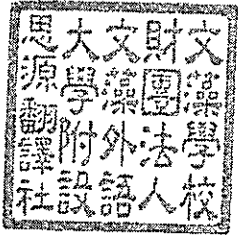 文藻學校
財團法人
文藻外語
大學附設
思源翻譯社